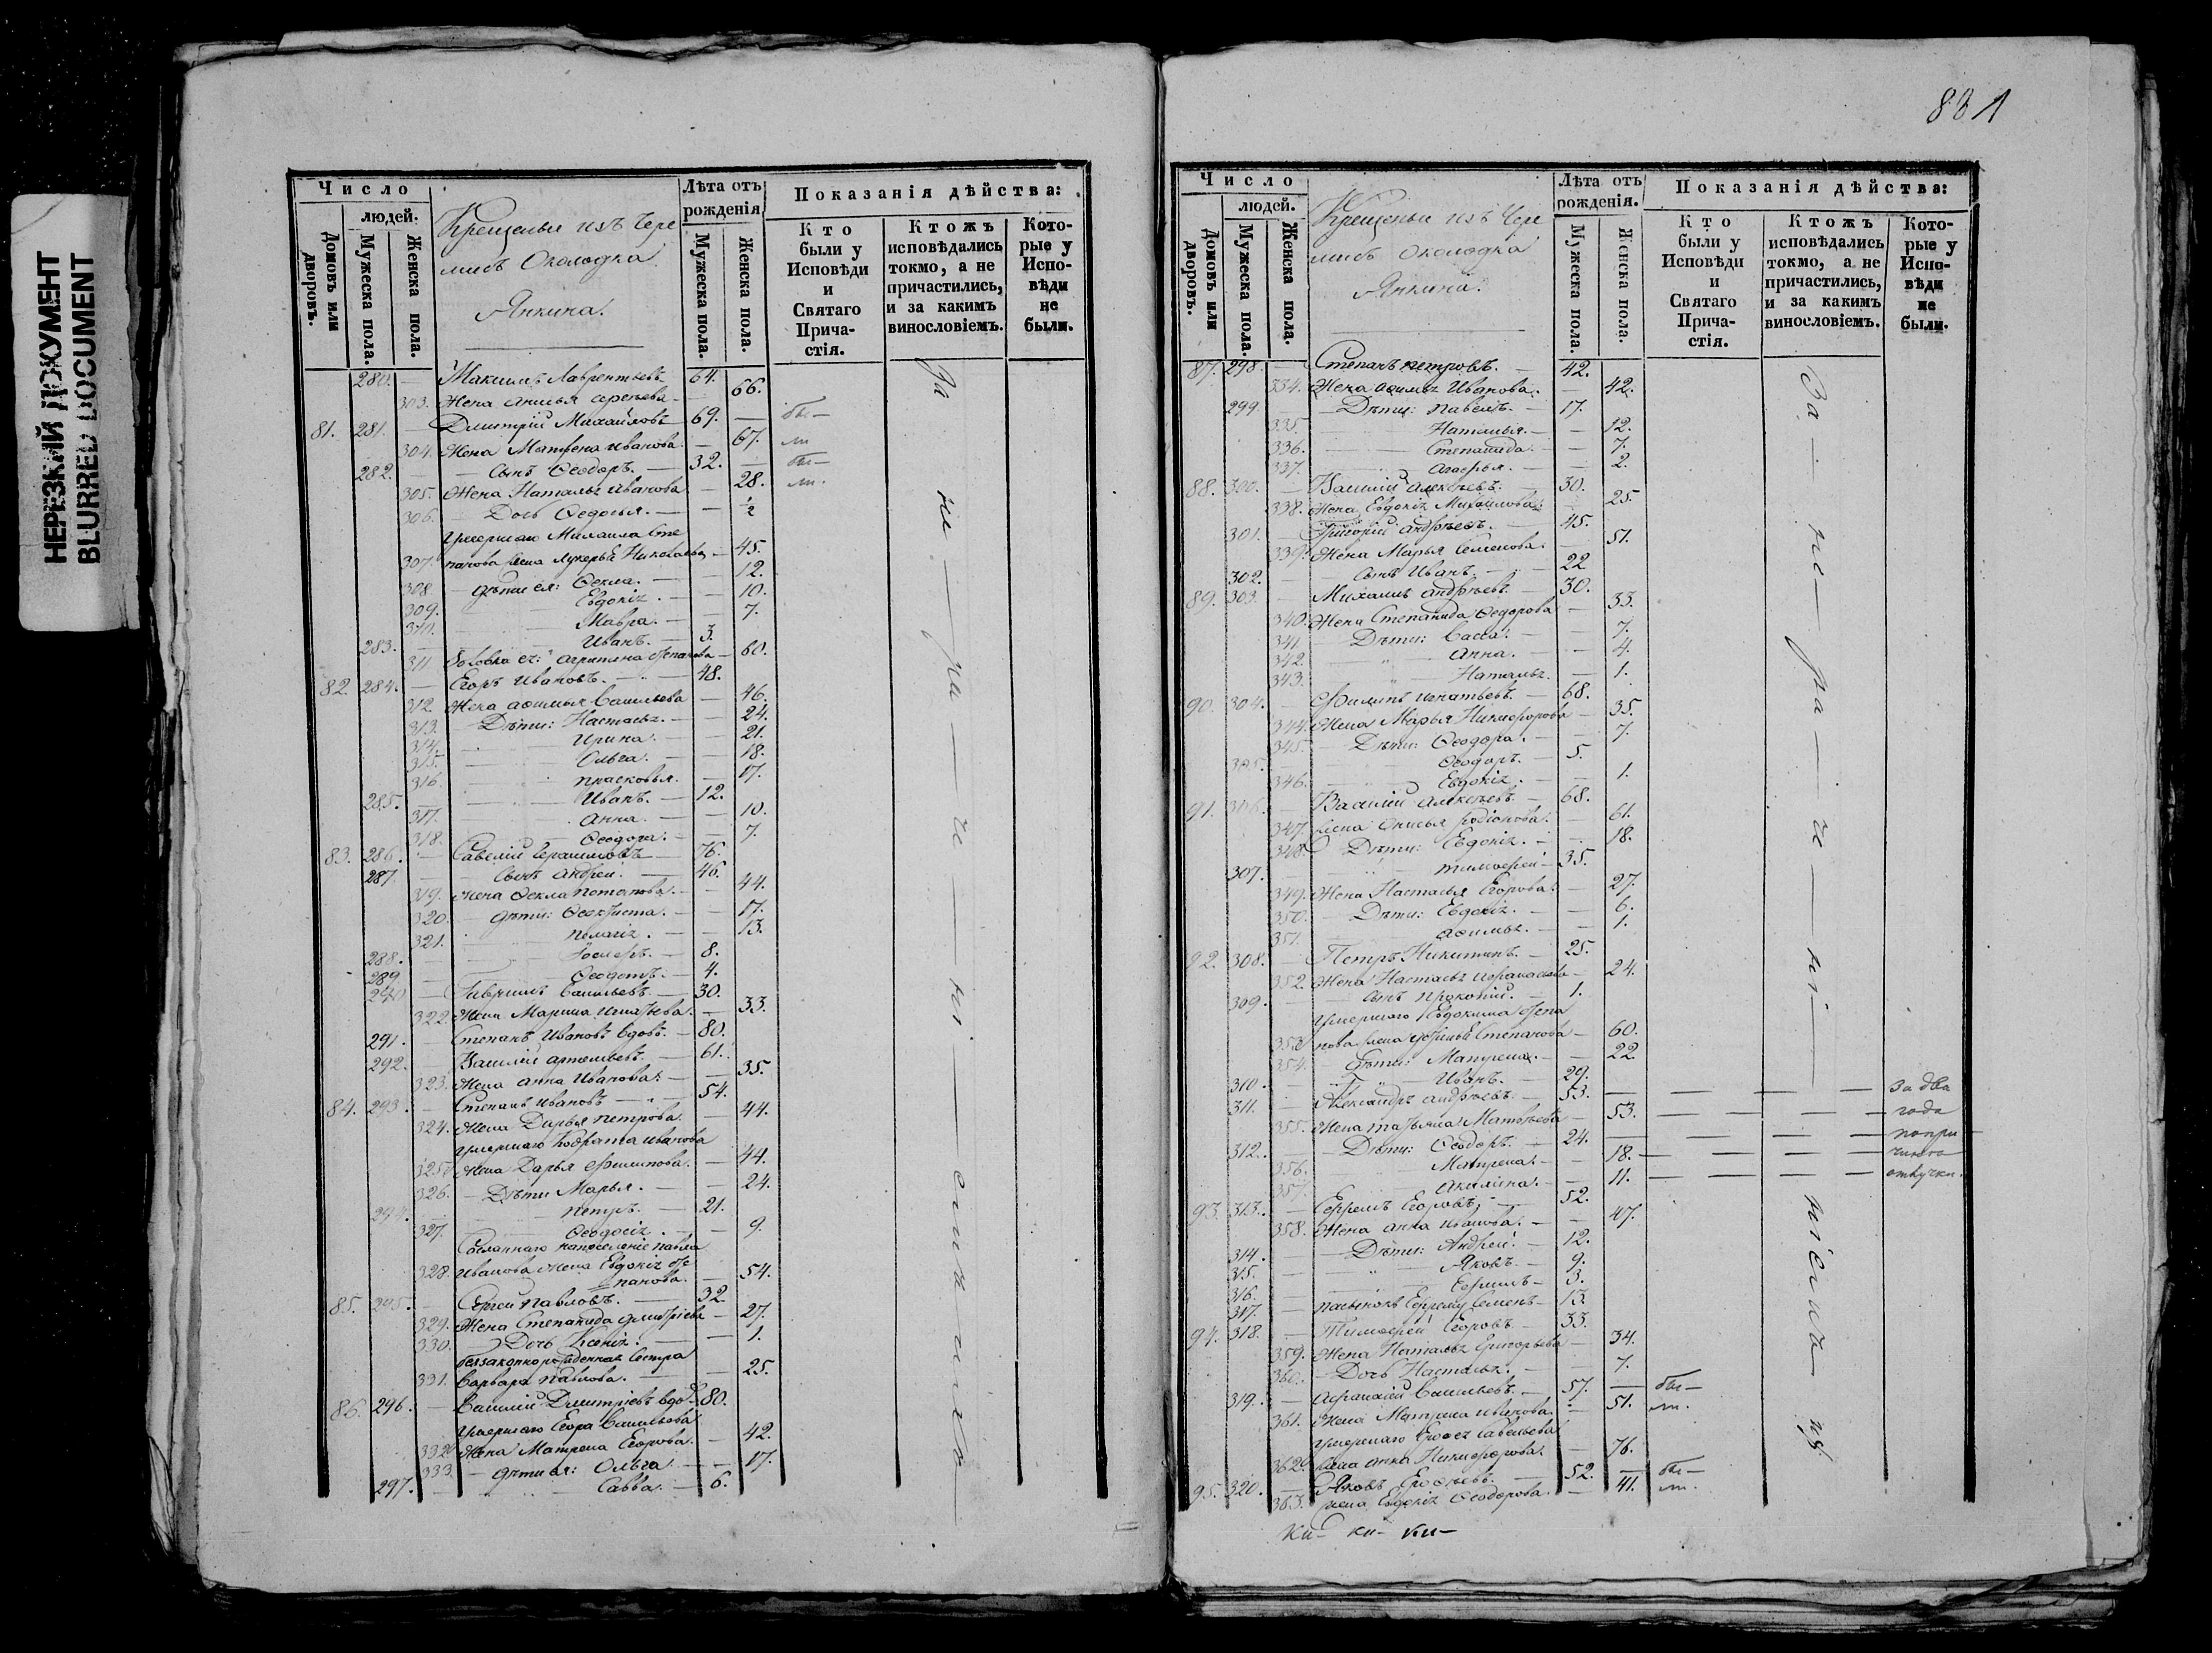 НЕРЕЗКИЙ ДОКУМЕНТ
BLURRED DOCUMENT
Число
людей.
Домовъ или дворовъ.
Мужеска пола.
Женска пола.
Крещеныи изъ Чере
мисъ Околодка
Янкина.
Лѣта отъ рожденія
Мужеска пола.
Женска пола.
Показанія дѣйства:
Кто были у Исповѣди и Святаго Прича-стія.
Ктожъ исповѣдались токмо, а не причастились, и за какимъ винословіемъ.
Кото-рые у Испо-вѣди не были.
280. Максимъ Лаврентьевъ 64.
303. Жена 66.
81. 281. Дмитрій Михайловъ 69. бы-
304. Жена Матрена Иванова 67. ли
282. Сынъ Ѳеодоръ. 32. бы-
305. Жена Наталья Иванова 28. ли.
306. Дочь Ѳедосья.
Умершаго Михаила Сте
307. панова жена Лукерья Николаева 45.
308 дѣти ея: Ѳекла. 12.
309. Евдокія. 10.
310. Мавра. 7.
283. Иванъ. 3.
311. 60.
82. 284. Егоръ Ивановъ. 48.
312. Жена Афимья Васильева 46.
313. Дѣти: Настасья. 24.
314. Ирина. 21.
315. Ольга. 18.
316. Прасковья. 17.
285. Иванъ. 12.
317. Анна. 10.
318. Ѳеодора. 7.
83. 286. Савелій Герасимовъ 76.
287. Сынъ Андрей. 46.
319. Жена Ѳекла Потапова. 44.
320. дѣти: Ѳеоктиста. 17.
321. Пелагія. 13.
288. 8.
289 Ѳеодотъ. 4.
290 Гавріилъ Васильевъ. 30.
322. Жена Марина Игнатьева. 33.
291. Степанъ Ивановъ вдовъ. 80.
292. Василій Артемьевъ. 61.
323. Жена Анна Иванова. 35.
84. 293. Степанъ Ивановъ 54.
324. Жена Дарья Петрова. 44.
Умершаго Кодрата Иванова
325. жена Дарья Филипова. 44.
326. Дѣти Марья. 24.
294. Петръ. 21.
327. Ѳеодосія. 9.
Сосланнаго на поселеніе Павла
328. Иванова жена Евдокія Сте
панова. 54.
85. 295. Сергей Павловъ. 32
329. Жена Степанида Дмитріева 27.
330. Дочь Ксенія. 1.
беззаконнорожденная Сестра
331. Варвара Павлова. 25.
86. 296. Василій Дмитріевъ вдовъ 80.
Умершаго Егора Васильева
332. Жена Матрена Егорова. 42.
333. дѣти ея: Ольга 17.
297. Савва. 6.
За не ра че ні
831
Число
людей.
Домовъ или дворовъ.
Мужеска пола.
Женска пола.
Крещеныи изъ Чере
мисъ Околодка
Янкина.
Лѣта отъ рожденія.
Мужеска пола.
Женска пола.
Показанія дѣйства:
Кто были у Исповѣди и Святаго Прича-стія.
Ктожъ исповѣдались токмо, а не причастились, и за какимъ винословіемъ.
Кото-рые у Испо-вѣди не были.
87. 298. Степанъ Петровъ. 42.
334. Жена Афимья Иванова. 42.
299. Дѣти: Павелъ. 17.
335. Наталья. 12.
336. Степанида. 7.
337. Агафья. 2.
88. 300. Василій Алексѣевъ. 30.
338. Жена Евдокія Михайлова. 25
301. Григорій Андрѣевъ. 45.
339. Жена Марья Семенова. 51.
302. сынъ Иванъ. 22
89. 303. Михаилъ Андрѣевъ. 30.
340. Жена Степанида Ѳедорова 33.
341 Дѣти: Васса. 7.
342. Анна. 4.
343. Наталья. 1.
90. 304. Филипъ Игнатьевъ. 68.
344. Жена Марья Никифорова 35.
345. Дѣти: Ѳеодора. 7.
305. Ѳеодоръ. 5.
346. Евдокія. 1.
91. 306. Василій Алексѣевъ. 68.
347. жена Онисья Родіонова. 61.
348. Дѣти: Евдокія. 18.
307. Тимофей 35.
349. Жена Настасья Егорова. 27.
350. Дѣти: Евдокія. 6.
351. Афимья. 1.
92. 308. Петръ Никитинъ. 25.
352. Жена Настасья 24.
309. сынъ Прокопій. 1.
Умершаго Евдокима Степа
353 нова жена Степанова 60.
354. дѣти: Матрена. 22
310. Иванъ. 29.
311. Александръ Андрѣевъ. 53. За два
355. Жена Татьяна Матвѣева 53. года
312. Дѣти: Ѳеодоръ. 24. попри
356. Матрена. 18. чинѣ
357. Акилина. 11. отлучки.
93. 313. Ефремъ Егоровъ. 52.
358. Жена Анна Иванова. 47.
314. Дѣти: Андрей. 12.
315. Яковъ. 9.
316. Ефимъ 3.
317. пасынокъ Ефрему Семенъ 13.
94. 318. Тимофей Егоровъ. 33.
359. Жена Наталья Григорьева 34.
360. Дочь Настасья. 7.
319. Афанасій Васильевъ. 57. бы-
361. Жена Матрена Иванова. 51. ли.
Умершаго Савельева
362. жена Анна Никифорова. 76.
95. 320. Яковъ Ерофѣевъ. 52. бы-
363. жена Евдокія Ѳеодорова. 41. ли.
За не ра че ні